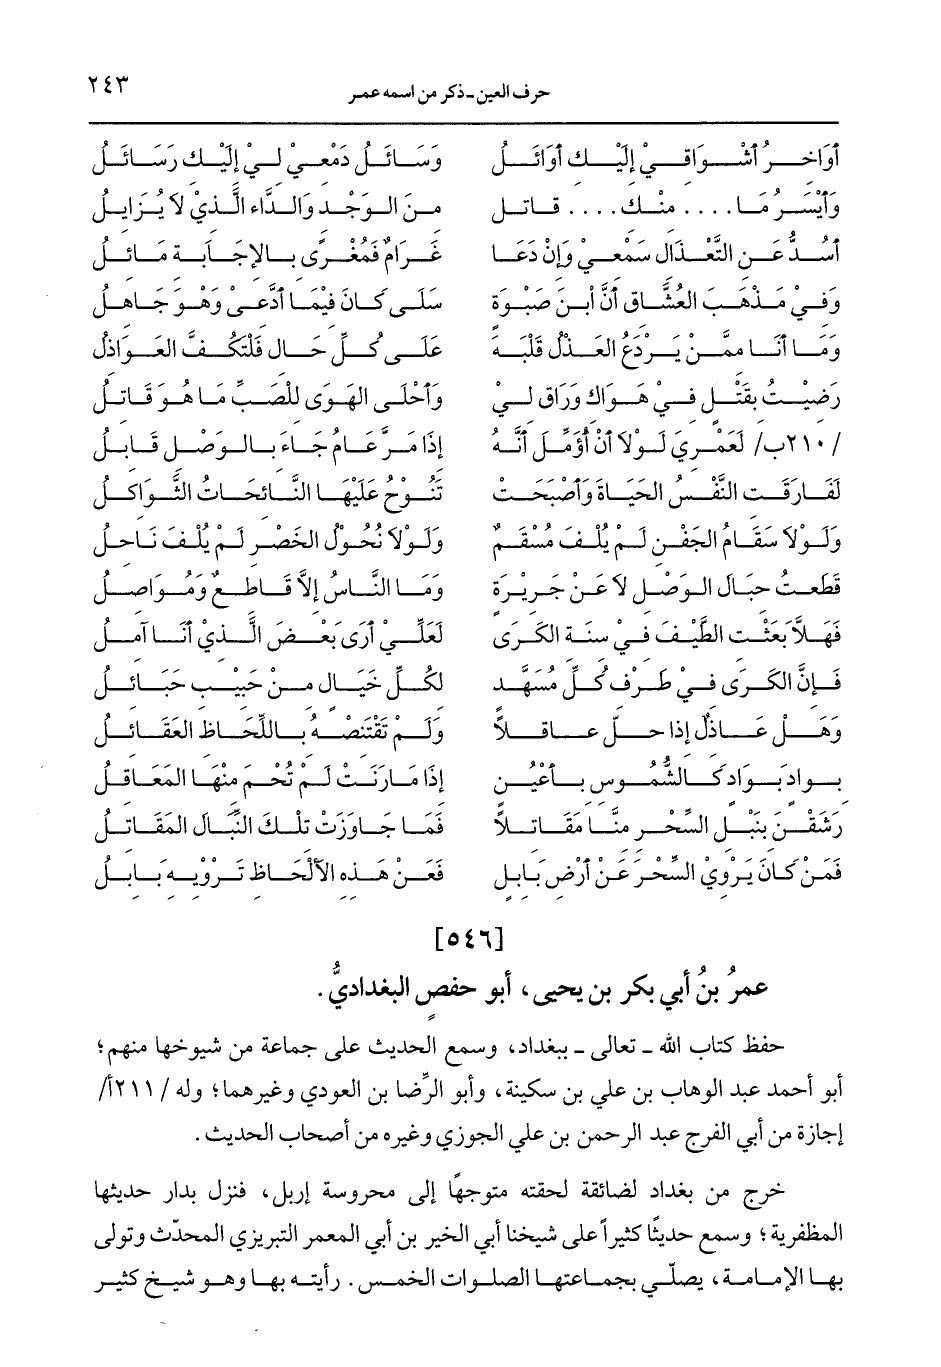 حرف العين ـ ذكر من اسمه عمر ٢٤٣
أَوَاخِرُ أَشْوَاقِيْ إِلَيْكَ أَوَائِلُ وَسَائِلُ دَمْعِيْ لِيْ إِلَيْكَ رَسَائِلُ
وَأَيْسَرُ مَا .... مِنْكَ .... قَاتِلٌ مِنَ الْوَجْدِ وَالدَّاءِ الَّذِيْ لاَ يُزَايِلُ
أَسُدُّ عَنِ التَّعْذَالِ سَمْعِي وَإِنْ دَعَا غَرَامٌ فَمُغْرًى بِالإِجَابَةِ مَائِلُ
وَفِيْ مَذْهَبِ العُشَّاقِ أَنِّ ابْنُ صَبْوَةٍ سَلَى كَانَ فِيْمَا أَدَّعِيْ وَهْوَ جَاهِلُ
وَمَا أَنَا مِمَّنْ يَرْدَعُ العَذْلُ قَلْبَهُ عَلَى كُلِّ حَالٍ فَلْتَكُفَّ العَوَاذِلُ
رَضِيْتُ بِقَتْلِي فِيْ هَوَاكَ وَرَاقَ لِيْ وَأَحْلَى الهَوَى لِلصَّبِّ مَا هُوَ قَاتِلُ
/٢١٠ب/ لَعَمْرِي لَوْلاَ أَنْ أُؤَمِّلَ أَنَّهُ إِذَا مَرَّ عَامٌ جَاءَ بِالوَصْلِ قَابِلُ
لَفَارَقَتِ النَّفْسُ الحَيَاةَ وَأَصْبَحَتْ تَنُوْحُ عَلَيْهَا النَّائِحَاتُ الثَّوَاكِلُ
وَلَوْلاَ سَقَامُ الجَفْنِ لَمْ يُلْفَ مُسْقَمٌ وَلَوْلاَ نُحُوْلُ الخَصْرِ لَمْ يُلْفَ نَاحِلُ
قَطَعْتَ حِبَالَ الوَصْلِ لاَ عَنْ جَرِيْرَةٍ وَمَا النَّاسُ إِلاَّ قَاطِعٌ وَمُوَاصِلُ
فَهَلاَّ بَعَثْتَ الطَّيْفَ فِيْ سِنَةِ الكَرَى لَعَلِّيْ أَرَى بَعْضَ الَّذِيْ أَنَا آمِلُ
فَإِنَّ الكَرَى فِيْ طَرْفِ كُلِّ مُسَهَّدٍ لِكُلِّ خَيَالٍ مِنْ حَبِيْبٍ حَبَائِلُ
وَهَلْ عَاذِلٌ إِذَا حَلَّ عَاقِلاً وَلَمْ تَقْتَنِصْهُ بِاللِّحَاظِ العَقَائِلُ
بَوَادٍ بَوَادٍ كَالشُّمُوسِ بِأَعْيُنٍ إِذَا مَا رَنَتْ لَمْ تُحْمَ مِنْهَا المَعَاقِلُ
رَشَقْنَ بِنَبْلِ السِّحْرِ مِنَّا مَقَاتِلاً فَمَا جَاوَزَتْ تِلْكَ النِّبَالَ المَقَاتِلُ
فَمَنْ كَانَ يَرْوِيْ السِّحْرَ عَنْ أَرْضِ بَابِلٍ فَعَنْ هَذِهِ الأَلْحَاظِ تَرْوِيْهِ بَابِلُ
[٥٤٦]
عمرُ بنُ أبي بكر بن يحيى، أبو حفصٍ البغداديُّ.
حفظ كتاب الله ـ تعالى ـ ببغداد، وسمع الحديث على جماعة من شيوخها منهم؛
أبو أحمد عبد الوهاب بن علي بن سكينة، وأبو الرِّضا بن العودي وغيرهما؛ وله /٢١١أ/
إجازة من أبي الفرج عبد الرحمن بن علي الجوزي وغيره من أصحاب الحديث.
خرج من بغداد لضائقة لحقته متوجهًا إلى محروسة إربل، فنزل بدار حديثها
المظفرية؛ وسمع حديثًا كثيراً على شيخنا أبي الخير بن أبي المعمر التبريزي المحدّث وتولى
بها الإمامة، يصلّي بجماعتها الصلوات الخمس. رأيته بها وهو شيخ كثير